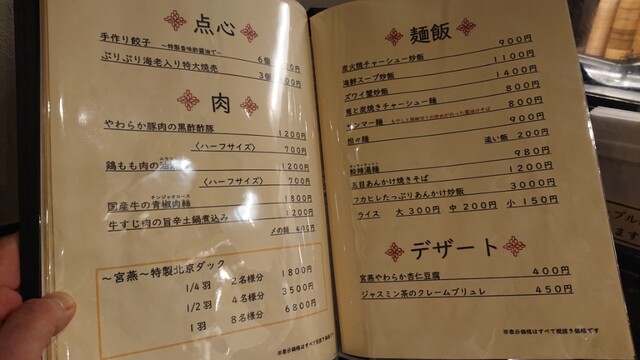 点心
手作り餃子 ～特製香味酢醤油で～ 6個
ぷりぷり海老入り特大焼売 3個
肉
やわらか豚肉の黒酢酢豚 1200円
〈ハーフサイズ〉 700円
鶏もも肉の 1200円
〈ハーフサイズ〉 700円
国産牛の青椒肉絲 1800円
チンジャオロース
牛すじ肉の旨辛土鍋煮込み 1200円
〆の麺 400円
～宮燕～特製北京ダック
1/4羽 2名様分 1800円
1/2羽 4名様分 3500円
1羽 8名様分 6800円
※表示価格はすべて税抜き価格です
麺飯
炭火焼チャーシュー炒飯 900円
海鮮スープ炒飯 1100円
ズワイ蟹炒飯 1400円
葱と炭焼きチャーシュー麺 800円
サンマー麺 800円
担々麺 900円
追い飯 200円
酸辣湯麺 980円
五目あんかけ焼きそば 1200円
フカヒレたっぷりあんかけ炒飯 3000円
ライス 大300円 中200円 小150円
デザート
宮燕やわらか杏仁豆腐 400円
ジャスミン茶のクレームブリュレ 450円
※表示価格はすべて税抜き価格です